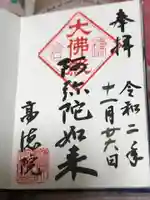 奉拝
令和二年
十一月廿六日
大佛
阿弥陀如来
高徳院